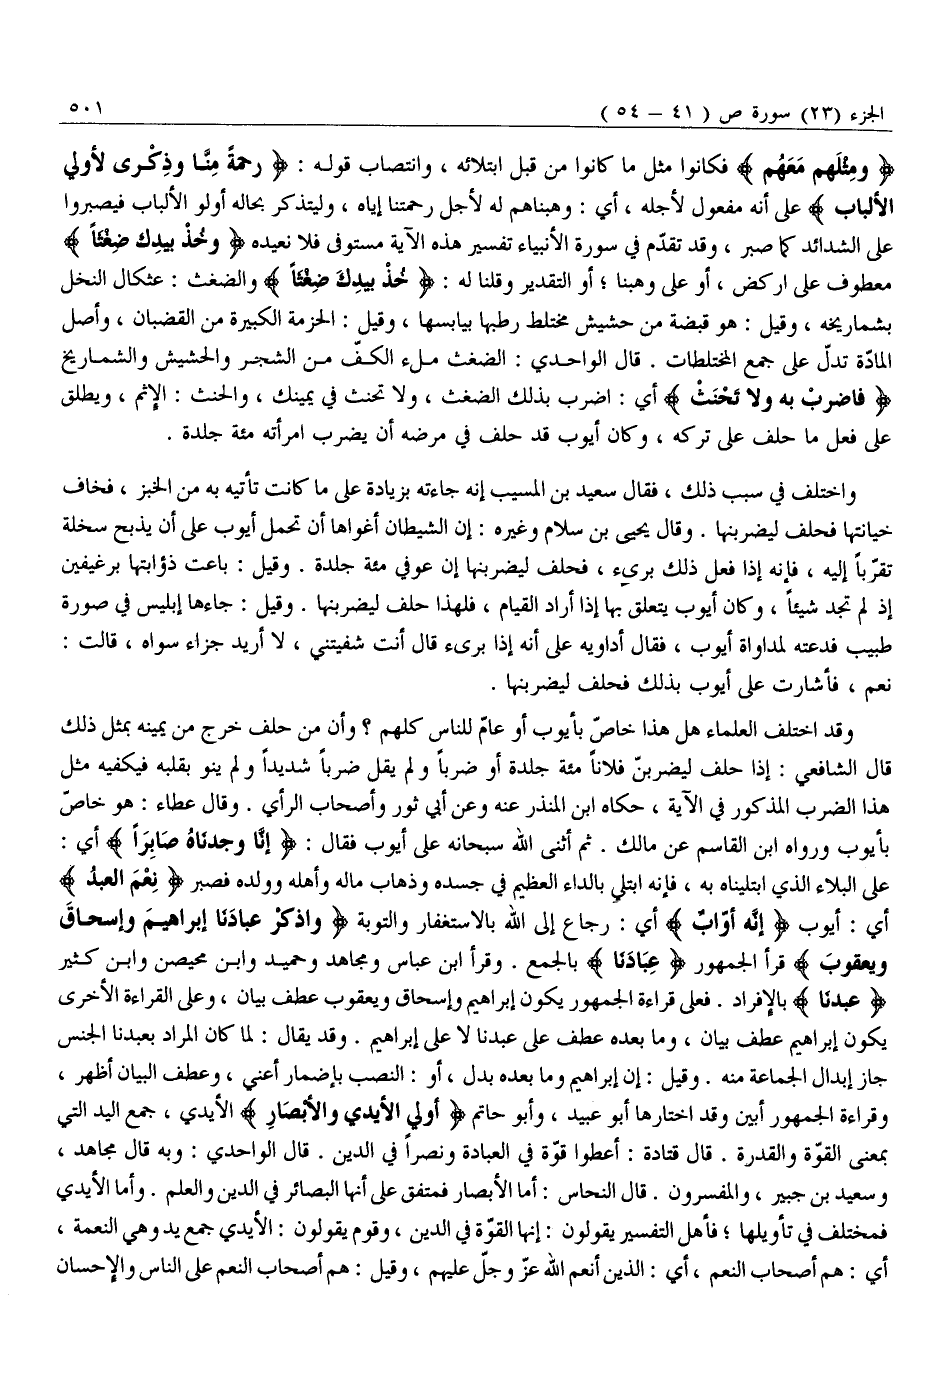 الجزء (٢٣) سورة ص ( ٤١ – ٥٤ ) ٥٠١
﴿ ومِثْلَهم مَعَهُم ﴾ فكانوا مثل ما كانوا من قبل ابتلائه ، وانتصاب قوله : ﴿ رحمةً مِنَّا وذِكْرى لأولي
الألباب ﴾ على أنه مفعول لأجله ، أي : وهبناهم له لأجل رحمتنا إياه ، وليتذكر بحاله أولو الألباب فيصبروا
على الشدائد كما صبر ، وقد تقدّم في سورة الأنبياء تفسير هذه الآية مستوفى فلا نعيده ﴿ وخُذْ بيدِك ضِغْثاً ﴾
معطوف على اركض ، أو على وهبنا ؛ أو التقدير وقلنا له : ﴿ خُذْ بيدِكَ ضِغْثَاً ﴾ والضغث : عثكال النخل
بشماريخه ، وقيل : هو قبضة من حشيش مختلط رطبها بيابسها ، وقيل : الحزمة الكبيرة من القضبان ، وأصل
المادّة تدلّ على جمع المختلطات . قال الواحدي : الضغث ملء الكفّ من الشجر والحشيش والشماريخ
﴿ فاضربْ به ولا تَحْنَثْ ﴾ أي : اضرب بذلك الضغث ، ولا تحنث في يمينك ، والحنث : الإثم ، ويطلق
على فعل ما حلف على تركه ، وكان أيوب قد حلف في مرضه أن يضرب امرأته مئة جلدة .
واختلف في سبب ذلك ، فقال سعيد بن المسيب إنه جاءته بزيادة على ما كانت تأتيه به من الخبز ، فخاف
خيانتها فحلف ليضربنها . وقال يحيى بن سلام وغيره : إن الشيطان أغواها أن تحمل أيوب على أن يذبح سخلة
تقرّباً إليه ، فإنه إذا فعل ذلك برىء ، فحلف ليضربنها إن عوفي مئة جلدة . وقيل : باعت ذؤابتها برغيفين
إذ لم تجد شيئاً ، وكان أيوب يتعلق بها إذا أراد القيام ، فلهذا حلف ليضربنها . وقيل : جاءها إبليس في صورة
طبيب فدعته لمداواة أيوب ، فقال أداويه على أنه إذا برىء قال أنت شفيتني ، لا أريد جزاء سواه ، قالت :
نعم ، فأشارت على أيوب بذلك فحلف ليضربنها .
وقد اختلف العلماء هل هذا خاصّ بأيوب أو عامّ للناس كلهم ؟ وأن من حلف خرج من يمينه بمثل ذلك
قال الشافعي : إذا حلف ليضربنّ فلاناً مئة جلدة أو ضرباً ولم يقل ضرباً شديداً ولم ينو بقلبه فيكفيه مثل
هذا الضرب المذكور في الآية ، حكاه ابن المنذر عنه وعن أبي ثور وأصحاب الرأي . وقال عطاء : هو خاصّ
بأيوب ورواه ابن القاسم عن مالك . ثم أثنى الله سبحانه على أيوب فقال : ﴿ إنَّا وجدنَاهُ صَابِرَاً ﴾ أي :
على البلاء الذي ابتليناه به ، فإنه ابتلي بالداء العظيم في جسده وذهاب ماله وأهله وولده فصبر ﴿ نِعْمَ العبدُ ﴾
أي : أيوب ﴿ إنَّه أوّابٌ ﴾ أي : رجاع إلى الله بالاستغفار والتوبة ﴿ واذكرْ عبادَنَا إبراهيمَ وإسحاقَ
ويعقوبَ ﴾ قرأ الجمهور ﴿ عِبَادَنَا ﴾ بالجمع . وقرأ ابن عباس ومجاهد وحميد وابن محيصن وابن كثير
﴿ عبدنَا ﴾ بالإفراد . فعلى قراءة الجمهور يكون إبراهيم وإسحاق ويعقوب عطف بيان ، وعلى القراءة الأخرى
يكون إبراهيم عطف بيان ، وما بعده عطف على عبدنا لا على إبراهيم . وقد يقال : لما كان المراد بعبدنا الجنس
جاز إبدال الجماعة منه . وقيل : إن إبراهيم وما بعده بدل ، أو : النصب بإضمار أعني ، وعطف البيان أظهر ،
وقراءة الجمهور أبين وقد اختارها أبو عبيد ، وأبو حاتم ﴿ أولي الأيدي والأبْصَارِ ﴾ الأيدي ، جمع اليد التي
بمعنى القوّة والقدرة . قال قتادة : أعطوا قوّة في العبادة ونصراً في الدين . قال الواحدي : وبه قال مجاهد ،
وسعيد بن جبير ، والمفسرون . قال النحاس : أما الأبصار فمتفق على أنها البصائر في الدين والعلم . وأما الأيدي
فمختلف في تأويلها ؛ فأهل التفسير يقولون : إنها القوّة في الدين ، وقوم يقولون : الأيدي جمع يد وهي النعمة ،
أي : هم أصحاب النعم ، أي : الذين أنعم الله عزّ وجلّ عليهم ، وقيل : هم أصحاب النعم على الناس والإحسان